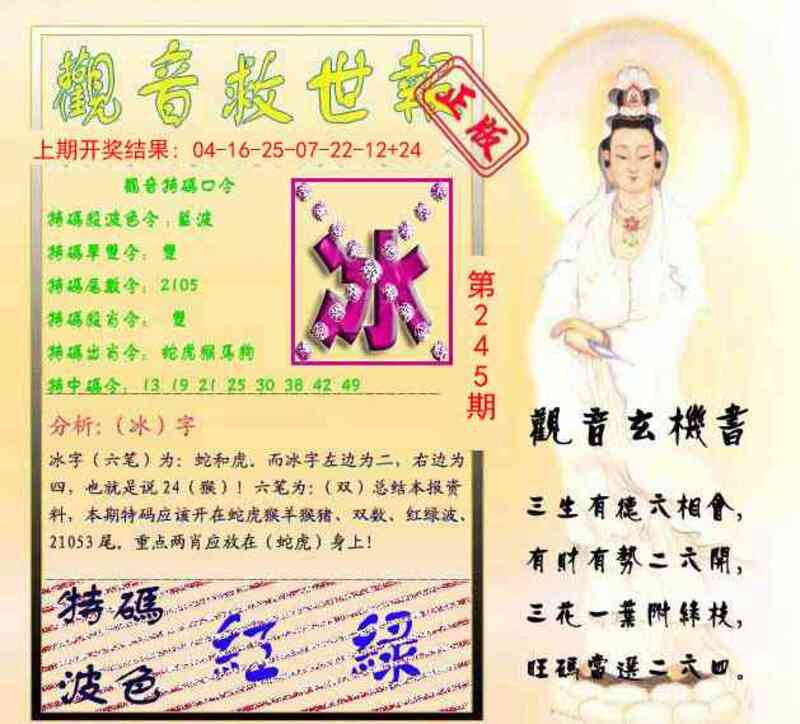 觀音救世報
正版
上期开奖结果：04-16-25-07-22-12+24
觀音特碼口令
特碼殺波色令：藍波
特碼單雙令： 雙
特碼尾數令：2105
特碼殺肖令： 雙
特碼出肖令：蛇虎猴馬狗
特中碼令：13 19 21 25 30 38 42 49
冰
第245期
分析:（冰）字
冰字（六笔）为：蛇和虎。而冰字左边为二，右边为
四，也就是说24（猴）！六笔为:（双）总结本报资
料，本期特码应该开在蛇虎猴羊猴猪、双数、红绿波、
21053尾。重点两肖应放在（蛇虎）身上！
特碼
波色
紅 綠
觀音玄機書
三生有德六相會，
有財有勢二六開，
三花一葉附綠枝，
旺碼當選二六四。